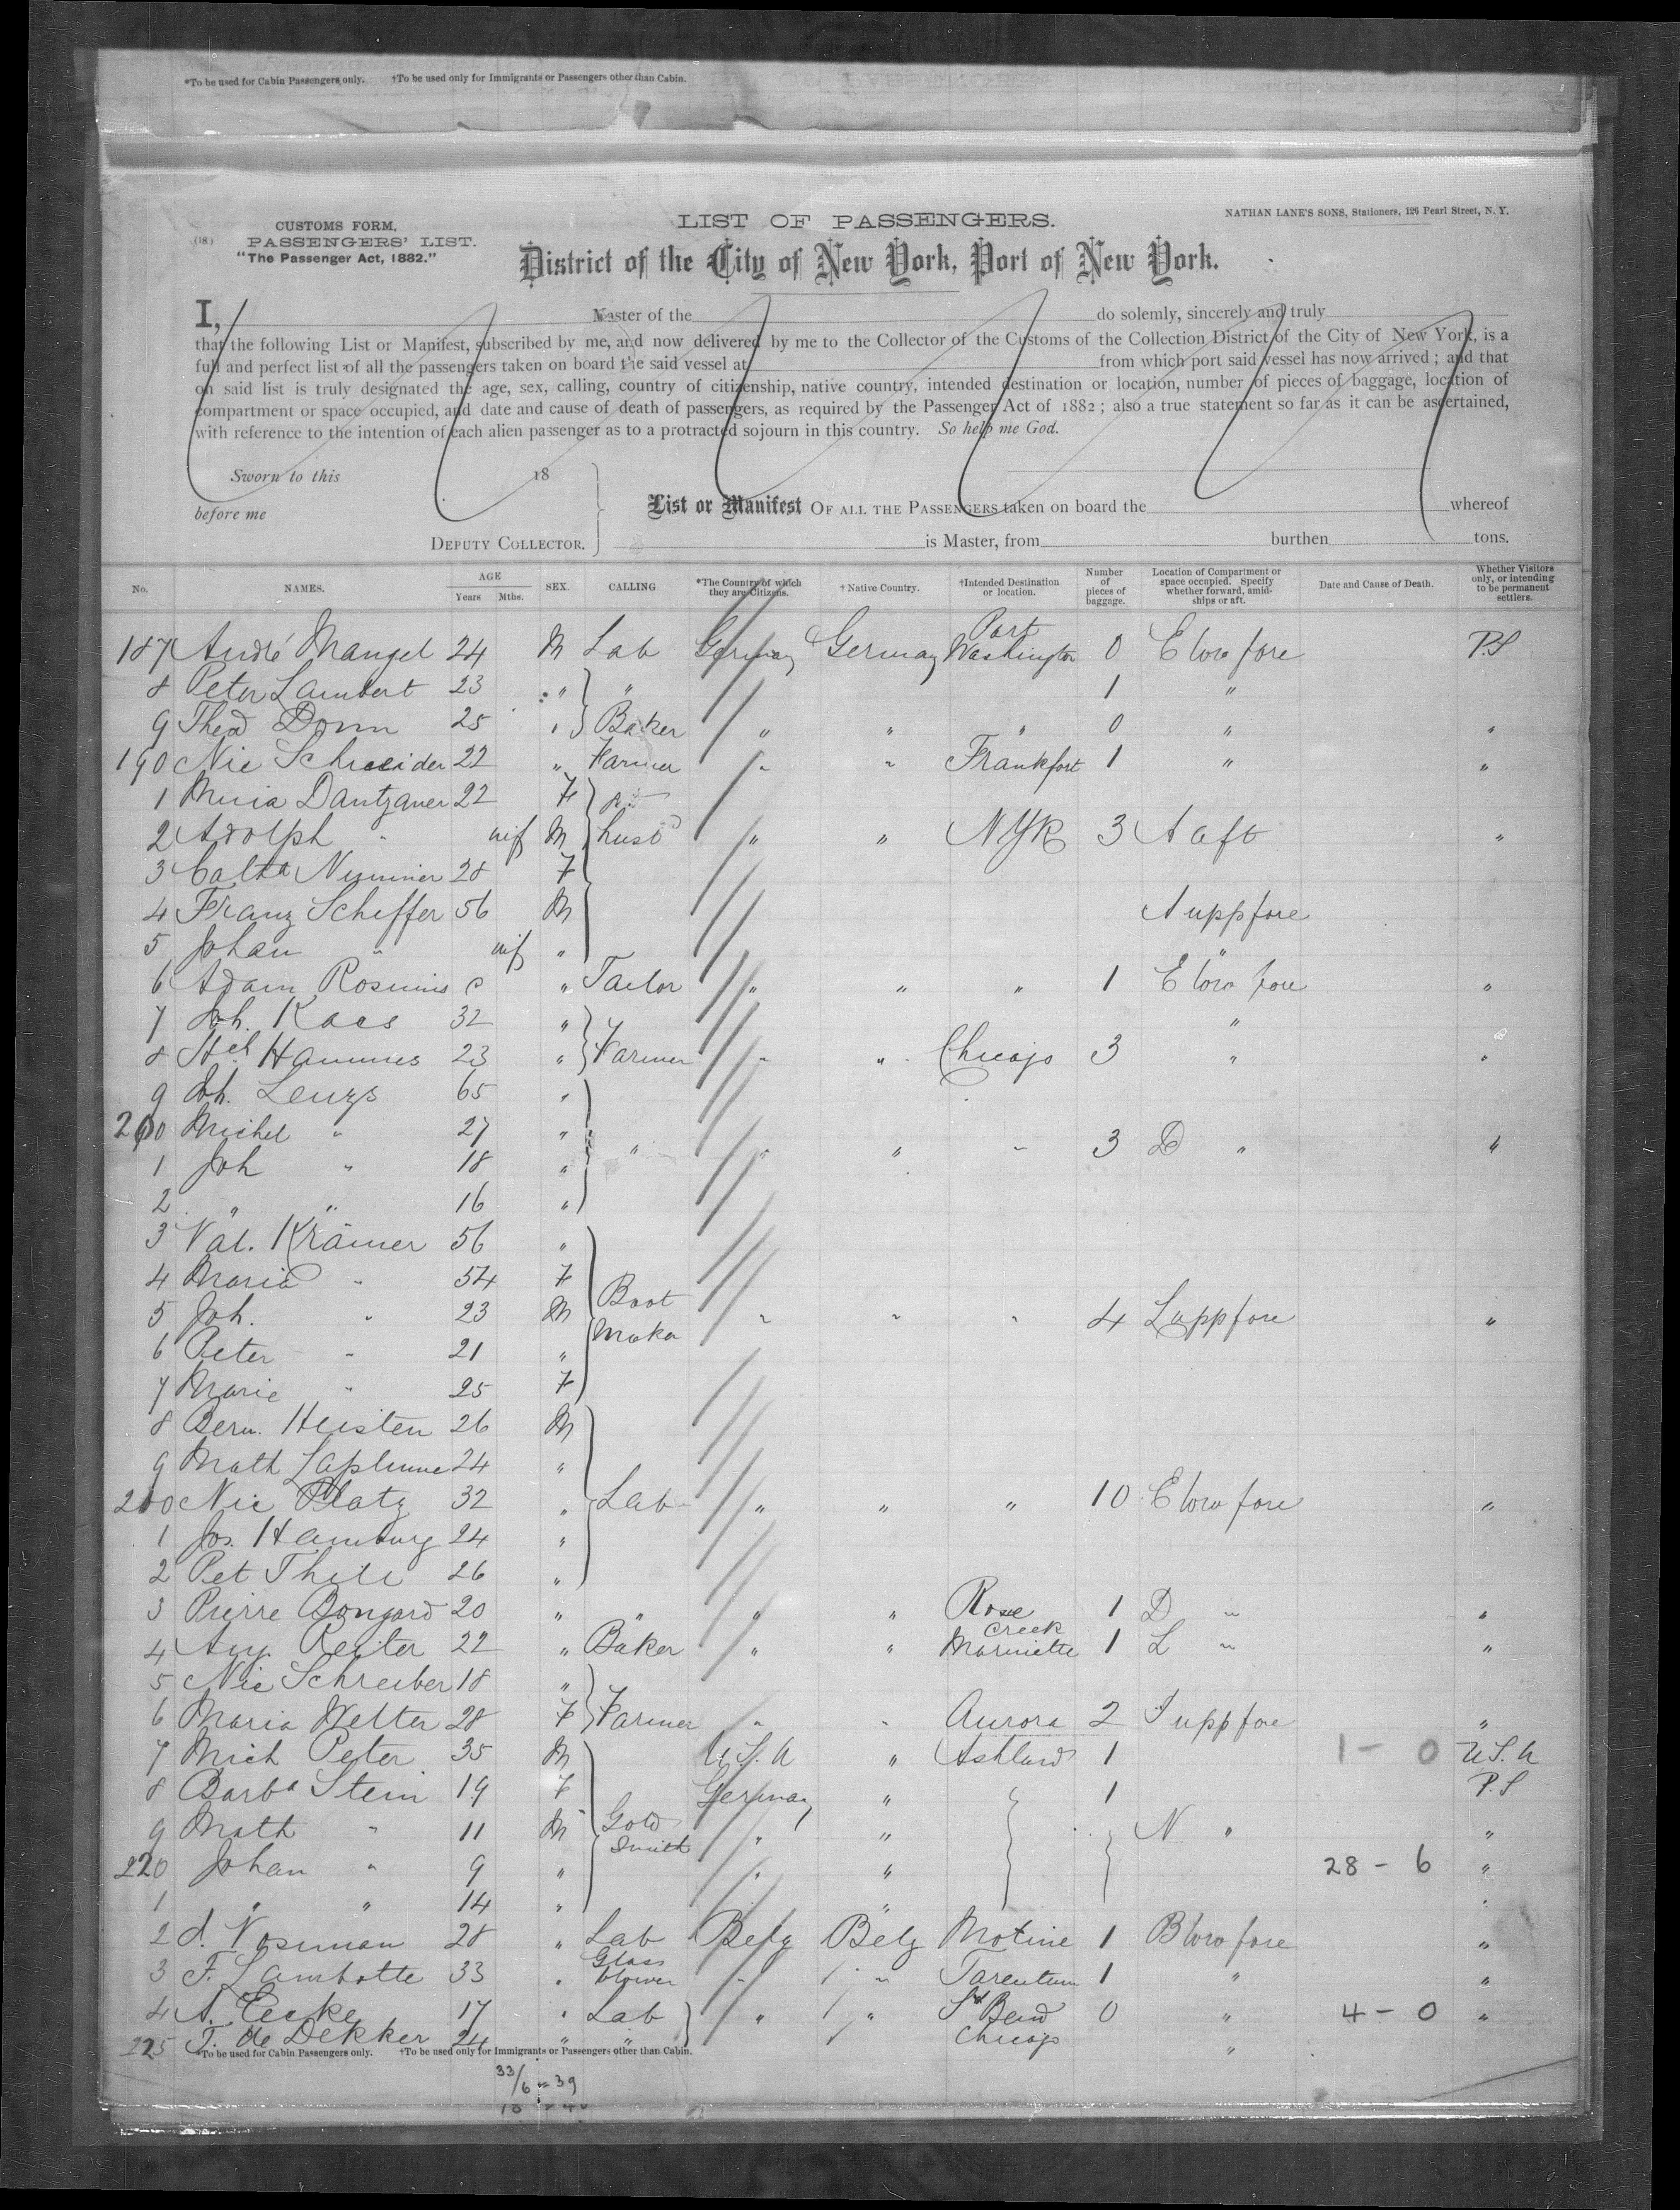 *To be used for Cabin Passengers only. †To be used only for Immigrants or Passengers other than Cabin.
(18) CUSTOMS FORM,
PASSENGERS' LIST.
"The Passenger Act, 1882."
LIST OF PASSENGERS.
NATHAN LANE'S SONS, Stationers, 126 Pearl Street, N. Y.
District of the City of New York, Port of New York.
I, Master of the do solemnly, sincerely and truly
that the following List or Manifest, subscribed by me, and now delivered by me to the Collector of the Customs of the Collection District of the City of New York, is a
full and perfect list of all the passengers taken on board the said vessel at from which port said vessel has now arrived; and that
on said list is truly designated the age, sex, calling, country of citizenship, native country, intended destination or location, number of pieces of baggage, location of
compartment or space occupied, and date and cause of death of passengers, as required by the Passenger Act of 1882; also a true statement so far as it can be ascertained,
with reference to the intention of each alien passenger as to a protracted sojourn in this country. So help me God.
Sworn to this 18
before me
DEPUTY COLLECTOR.
List or Manifest OF ALL THE PASSENGERS taken on board the whereof
is Master, from burthen tons.
No. NAMES. AGE Years Mths. SEX. CALLING *The Country of which they are Citizens. † Native Country. †Intended Destination or location. Number of pieces of baggage. Location of Compartment or space occupied. Specify whether forward, amidships or aft. Date and Cause of Death. Whether Visitors only, or intending to be permanent settlers.
187 André Mangel 24 M Lab Germany Germany Port Washington 0 E low fore P.S
8 Peter Lambert 23 " " 1 "
9 Theod Donn 25 " Baker " " " 0 " "
190 Nic Schneider 22 " Farmer " " Frankfort 1 " "
1 Maria Dantzaner 22 F
2 Adolph " inf M husb " " NYk 3 A aft "
3 Cath Nummer 28 F
4 Franz Scheffer 56 M A upp fore
5 Johan " inf " "
6 Adam Rosmus " Tailor " " " 1 E low fore "
7 Joh. Kaes 32 " "
8 Hch Hammes 23 " Farmer " " Chicago 3 " "
9 Joh. Lenzs 65 "
200 Michel " 27 " " " " " 3 D " "
1 Joh " 18 "
2 " " 16 "
3 Val. Krämer 56 "
4 Maria " 54 F
5 Joh. " 23 M Boot Maker " " " 4 L upp fore "
6 Peter " 21 "
7 Marie " 25 F
8 Bern. Heisten 26 M
9 Math Laplume 24 "
210 Nic Platz 32 " Lab " " " 10 E low fore "
1 Jos. Hamburg 24 "
2 Pet Thill 26 "
3 Pierre Bongard 20 " " " " Rose Creek 1 D " "
4 Aug. Reiter 22 " Baker " " Marinette 1 L " "
5 Nic Schreiber 18 "
6 Maria Welter 28 F Farmer " " Aurora 2 upp fore "
7 Mich Peter 35 M U.S.A " Ashland 1 1 - 0 U.S.A
8 Barba Stein 19 F Germany " 1 P.S
9 Math " 11 M Gold Smith " " N " "
220 Johan " 9 " " " 28 - 6 "
1 " " 14 " " "
2 d. Vosman 28 " Lab Belg Belg Moline 1 B low fore "
3 F. Lambotte 33 " Glass blower " " Tarentum 1 " "
4 A. Eecke 17 " Lab " " Sth Bend 0 " 4 - 0 "
225 T. de Dekker 24 " " Chicago "
*To be used for Cabin Passengers only. †To be used only for Immigrants or Passengers other than Cabin.
33/6 = 39